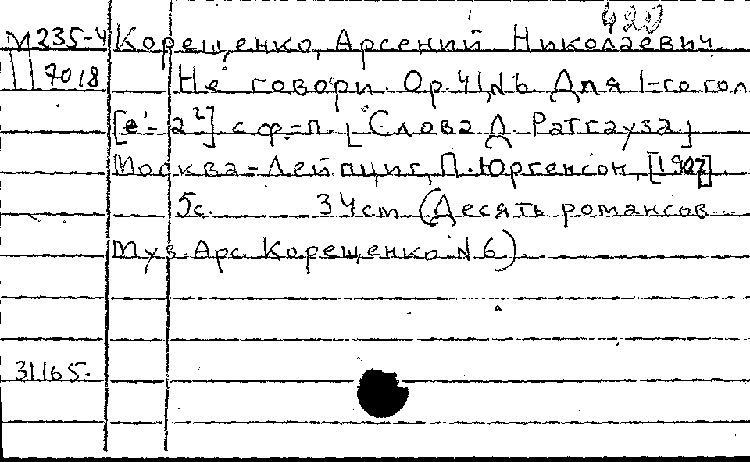 420
М 235-4 Корещенко, Арсений Николаевич
7018 Не говори. Ор. 41, №6. Для 1-го гол.
[e¹-a²] с ф.-п. [Слова Д. Ратгауза]
Москва-Лейпциг, П. Юргенсон, [1907]
5с. 34cm (Десять романсов
Муз. Арс. Корещенко №6)
31165-